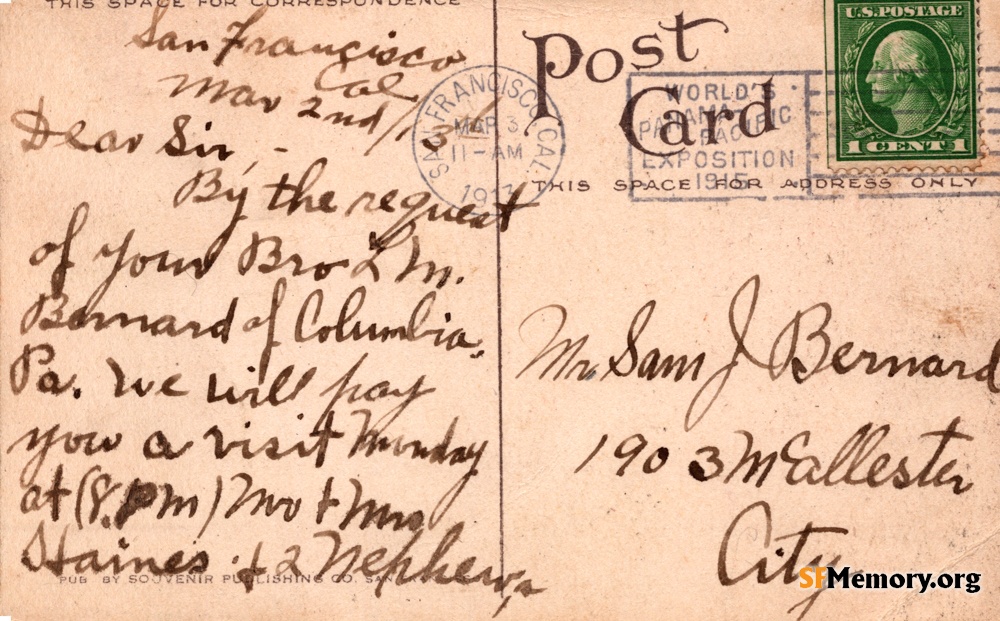 THIS SPACE FOR CORRESPONDENCE
San Francisco
Cal
Mar 2nd/13
Dear Sir, -
By the request
of your Bro L M.
Bernard of Columbia.
Pa. We will pay
you a visit Monday
at (8.PM) Mr & Mrs
Haines & 2 Nephews
PUB BY SOUVENIR PUBLISHING CO. SAN
Post
Card
SAN FRANCISCO CAL
MAR 3
11-AM
WORLD'S
PANAMA
PACIFIC
EXPOSITION
1915
U.S.POSTAGE
1 CENT 1
THIS SPACE FOR ADDRESS ONLY
Mr Sam J Bernard
1903 McAllester
City
SFMemory.org